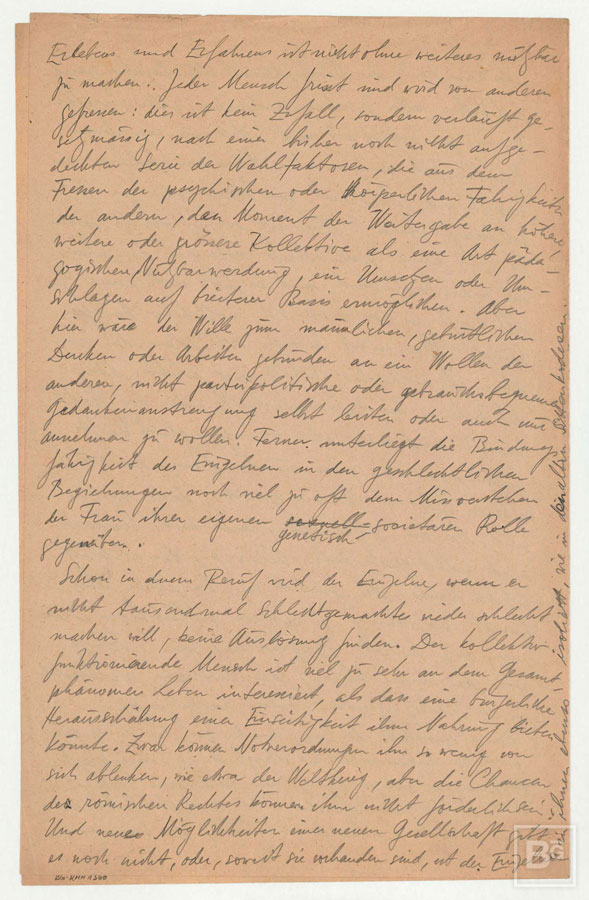 Erlebens und Erfahrens ist nicht ohne weiteres nutzbar
zu machen. Jeder Mensch frisst und wird von anderen
gefressen: dies ist kein Zufall, sondern verläuft ge-
setzmässig, nach einer bisher noch nicht aufge-
deckten Serie der Wahlfaktoren, die aus dem
Fressen der psychischen oder körperlichen Fähigkeiten
der andern, den Moment der Weitergabe an höhere,
weitere oder grössere Kollektive als eine Art päda-
gogischen Nutzbarwerdung, ein Umsetzen oder Um-
schlagen auf breiterer Basis ermöglichen. Aber
hier wäre der Wille zum männlichen,
Denken oder Arbeiten gebunden an ein Wollen der
anderen, nicht parteipolitische oder gebrauchsbequeme
Gedankenanstrengung selbst leisten oder auch nur
annehmen zu wollen. Ferner unterliegt die Bindungs-
fähigkeit des Einzelnen in den geschlechtlichen
Beziehungen noch viel zu oft dem Missverstehen
der Frau ihrer eigenen sexuell-societären Rolle
genetisch
gegenüber.
Schon in einem Beruf wird der Einzelne, wenn er
nicht tausendmal schlechtgemachtes wieder schlecht
machen will, keine Auslösung finden. Der kollektiv
funktionierende Mensch ist viel zu sehr an dem Gesamt-
phänomen Leben interessiert, als dass eine bürgerliche
Herausschälung einer Einseitigkeit ihm Nahrung bieten
könnte. Zwar können Notverordnungen ihn so wenig von
sich ablenken, wie etwa der Weltkrieg, aber die Chancen
des römischen Rechtes können ihm nicht förderlich sein.
Und neue Möglichkeiten einer neuen Gesellschaft gibt
es noch nicht, oder, soweit sie vorhanden sind, ist der Einzelne
in ihnen ebenso isoliert, wie in den alten
BG